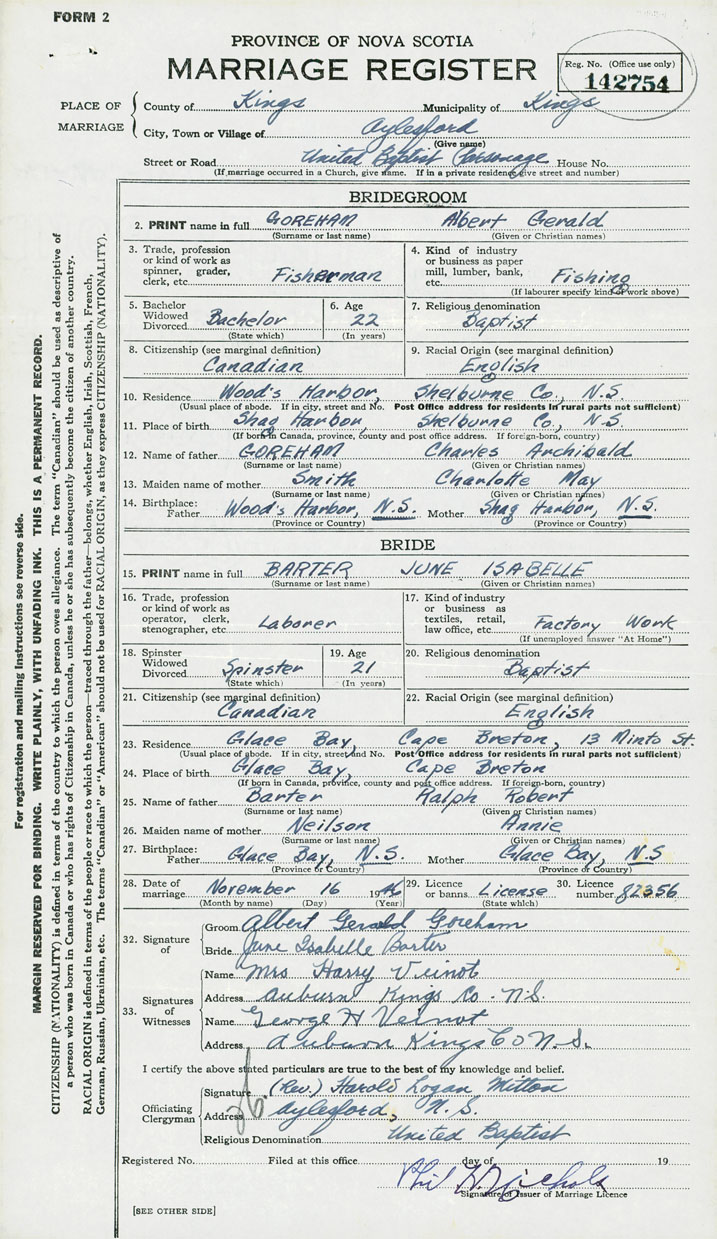 FORM 2
PROVINCE OF NOVA SCOTIA
MARRIAGE REGISTER
Reg. No. (Office use only)
142754
PLACE OF MARRIAGE
County of Kings Municipality of Kings
City, Town or Village of Aylesford
(Give name)
Street or Road United Baptist Parsonage House No.
(If marriage occurred in a Church, give name. If in a private residence give street and number)
BRIDEGROOM
2. PRINT name in full GOREHAM Albert Gerald
(Surname or last name) (Given or Christian names)
3. Trade, profession or kind of work as spinner, grader, clerk, etc. Fisherman
4. Kind of industry or business as paper mill, lumber, bank, etc. Fishing
(If labourer specify kind of work above)
5. Bachelor Widowed Divorced Bachelor
(State which)
6. Age 22
(In years)
7. Religious denomination
Baptist
8. Citizenship (see marginal definition)
Canadian
9. Racial Origin (see marginal definition)
English
10. Residence Wood's Harbor, Shelburne Co., N.S.
(Usual place of abode. If in city, street and No. Post Office address for residents in rural parts not sufficient)
11. Place of birth Shag Harbor, Shelburne Co., N.S.
(If born in Canada, province, county and post office address. If foreign-born, country)
12. Name of father GOREHAM Charles Archibald
(Surname or last name) (Given or Christian names)
13. Maiden name of mother Smith Charlotte May
(Surname or last name) (Given or Christian names)
14. Birthplace: Father Wood's Harbor, N.S. Mother Shag Harbor, N.S.
(Province or Country) (Province or Country)
BRIDE
15. PRINT name in full BARTER JUNE ISABELLE
(Surname or last name) (Given or Christian names)
16. Trade, profession or kind of work as operator, clerk, stenographer, etc. Laborer
17. Kind of industry or business as textiles, retail, law office, etc. Factory Work
(If unemployed answer "At Home")
18. Spinster Widowed Divorced Spinster
(State which)
19. Age 21
(In years)
20. Religious denomination
Baptist
21. Citizenship (see marginal definition)
Canadian
22. Racial Origin (see marginal definition)
English
23. Residence Glace Bay, Cape Breton, 13 Minto St.
(Usual place of abode. If in city, street and No. Post Office address for residents in rural parts not sufficient)
24. Place of birth Glace Bay, Cape Breton
(If born in Canada, province, county and post office address. If foreign-born, country)
25. Name of father Barter Ralph Robert
(Surname or last name) (Given or Christian names)
26. Maiden name of mother Neilson Annie
(Surname or last name) (Given or Christian names)
27. Birthplace: Father Glace Bay, N.S. Mother Glace Bay, N.S
(Province or Country) (Province or Country)
28. Date of marriage November 16 19
(Month by name) (Day) (Year)
29. Licence or banns License
(State which)
30. Licence number 82356
32. Signature of
Groom Albert Gerald Goreham
Bride June Isabelle Barter
33. Signatures of Witnesses
Name Mrs Harry Veinot
Address Auburn Kings Co. N.S.
Name George H Veinot
Address Auburn Kings Co N.S.
I certify the above stated particulars are true to the best of my knowledge and belief.
Officiating Clergyman
Signature (Rev.) Harold Logan Mitton
Address Aylesford, N.S.
Religious Denomination United Baptist
Registered No. Filed at this office day of 19
Phil H Nichols
Signature of Issuer of Marriage Licence
[SEE OTHER SIDE]
For registration and mailing instructions see reverse side.
MARGIN RESERVED FOR BINDING. WRITE PLAINLY, WITH UNFADING INK. THIS IS A PERMANENT RECORD.
CITIZENSHIP (NATIONALITY) is defined in terms of the country to which the person owes allegiance. The term "Canadian" should be used as descriptive of
a person who was born in Canada or who has rights of Citizenship in Canada, unless he or she has subsequently become the citizen of another country.
RACIAL ORIGIN is defined in terms of the people or race to which the person—traced through the father—belongs, whether English, Irish, Scottish, French,
German, Russian, Ukrainian, etc. The terms "Canadian" or "American" should not be used for RACIAL ORIGIN, as they express CITIZENSHIP (NATIONALITY).